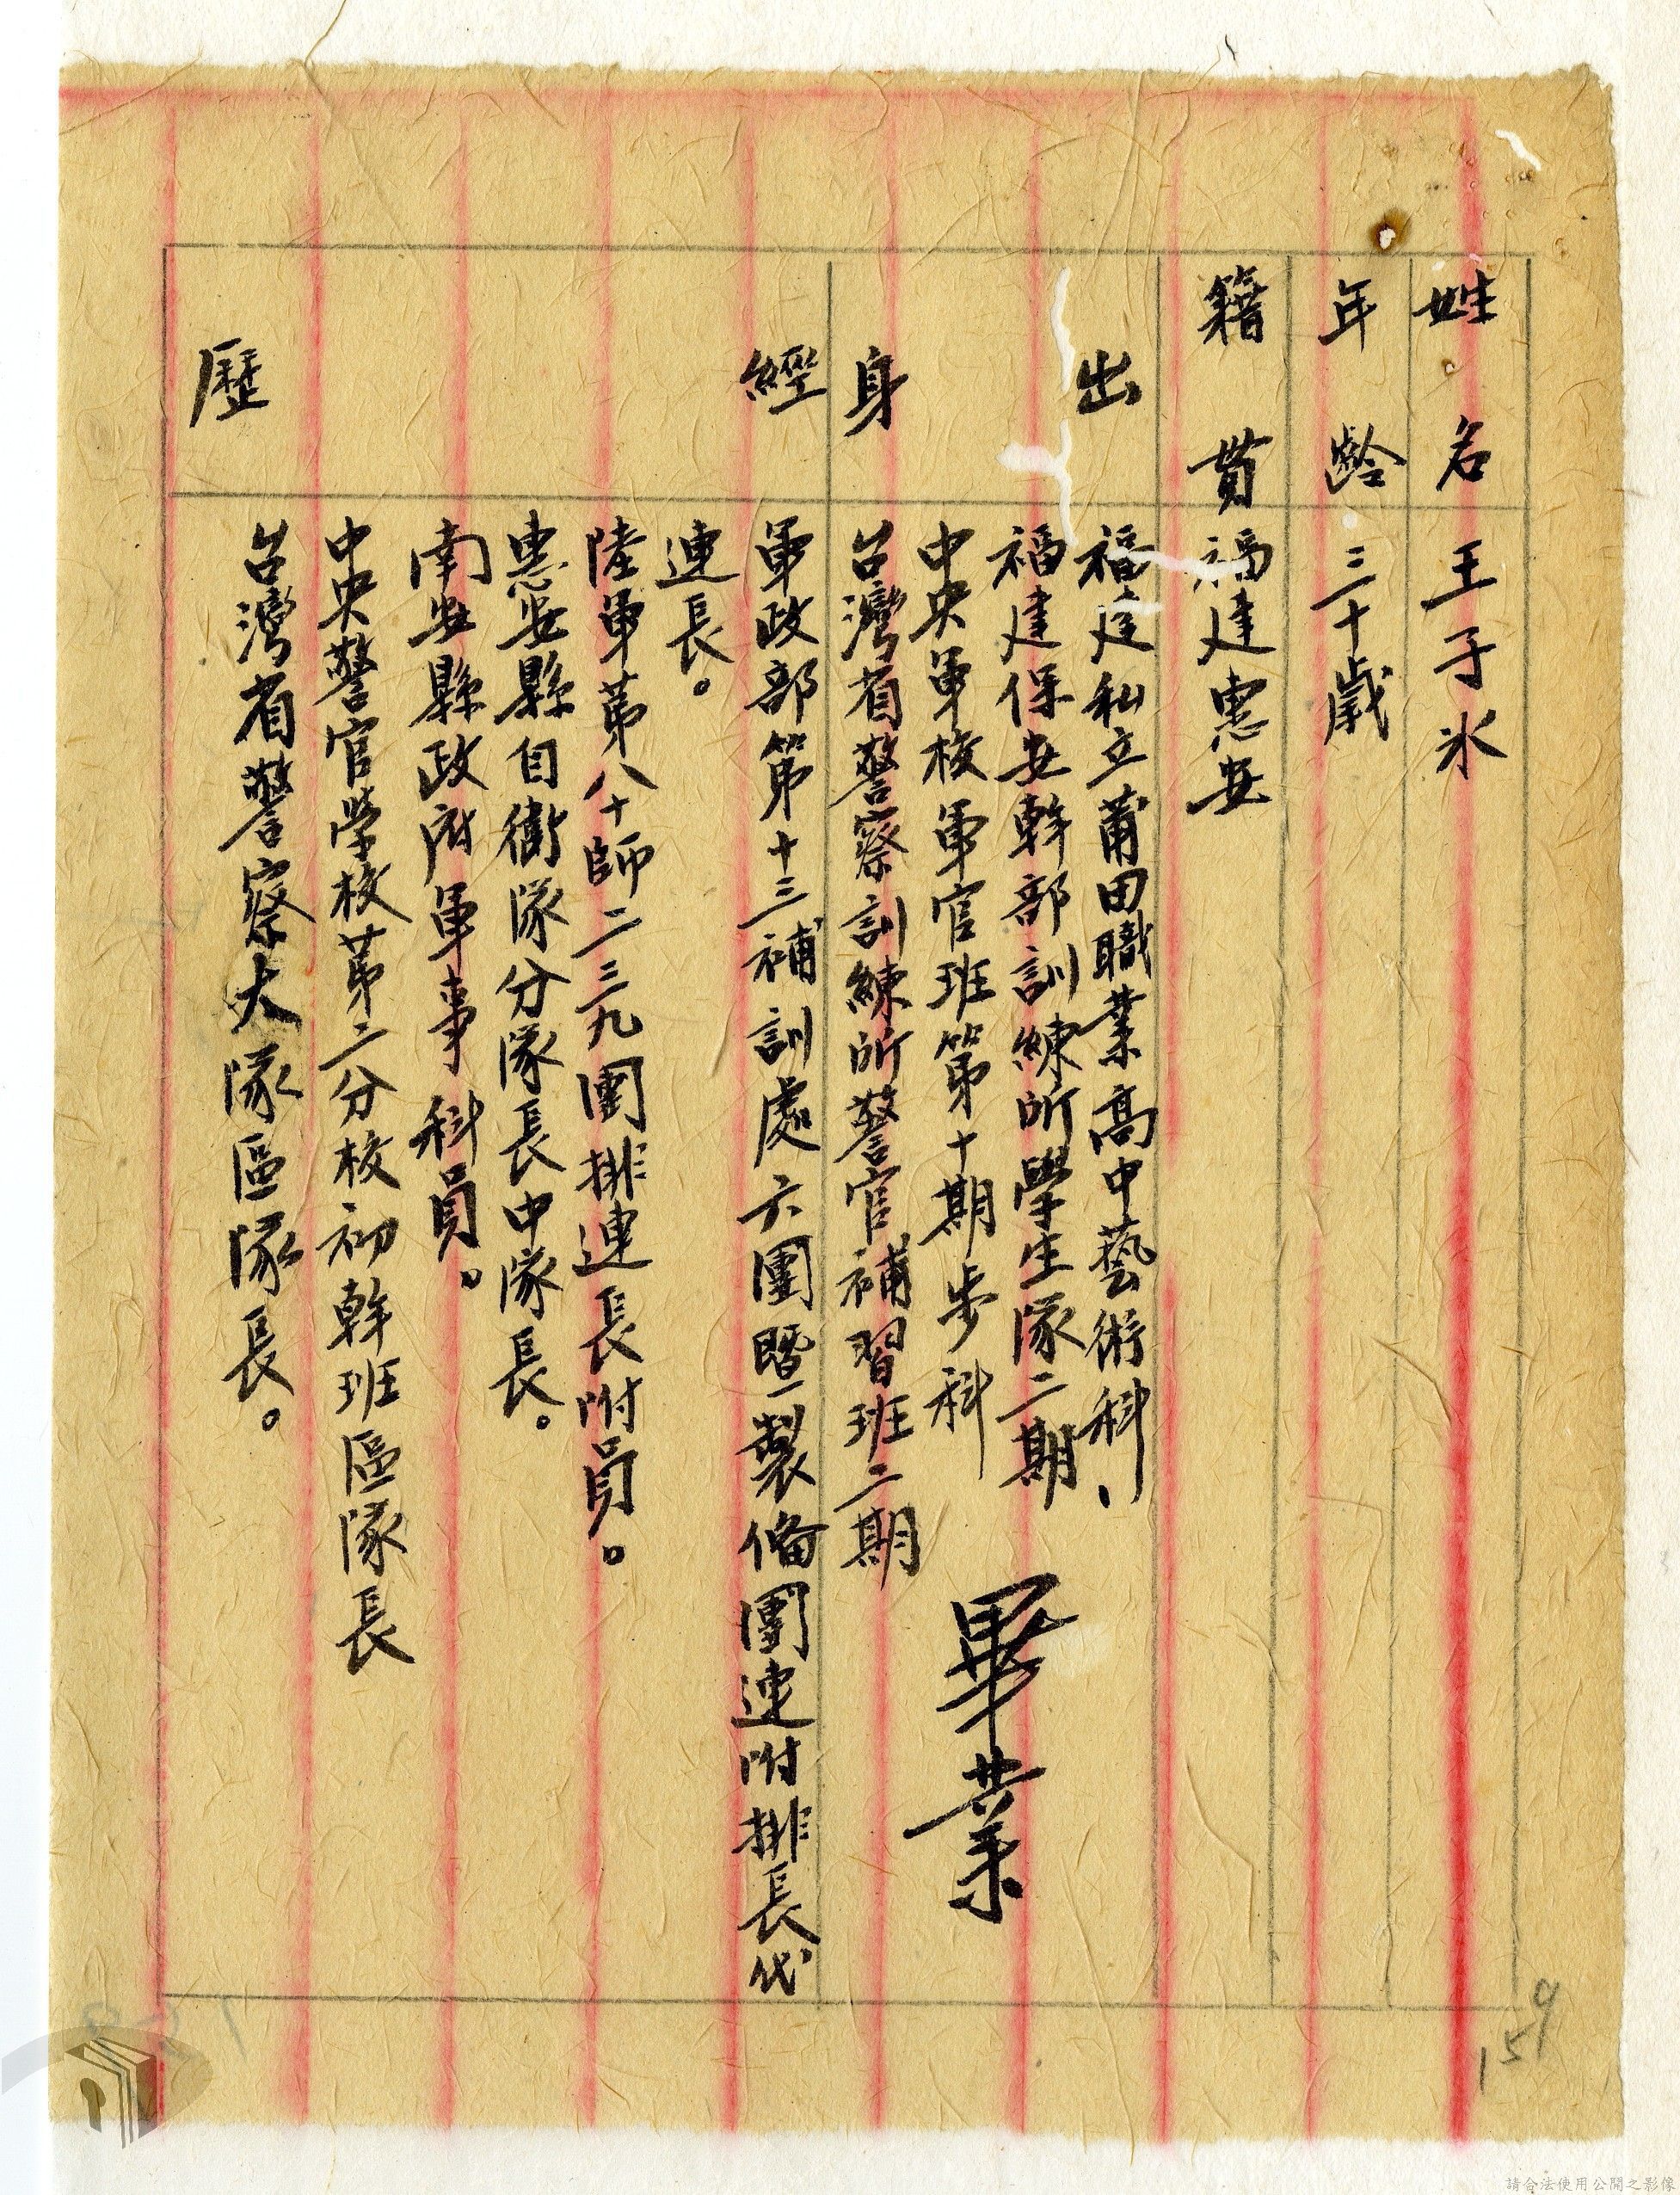 姓名 王子氷
年齡 三十歲
籍貫 福建惠安
出身
福建私立莆田職業高中藝術科、
福建保安幹部訓練所學生隊二期
中央軍校軍官班第十期步科
台灣省警察訓練所警官補習班二期
畢業
經歷
軍政部第十三補訓處六團暨一製俻團連附排長代
連長。
陸軍第八十師二三九團排連長附員。
惠安縣自衛隊分隊長中隊長。
南安縣政府軍事科員。
中央警官學校第二分校初幹班區隊長
台灣省警察大隊區隊長。
159
請合法使用公開之影像